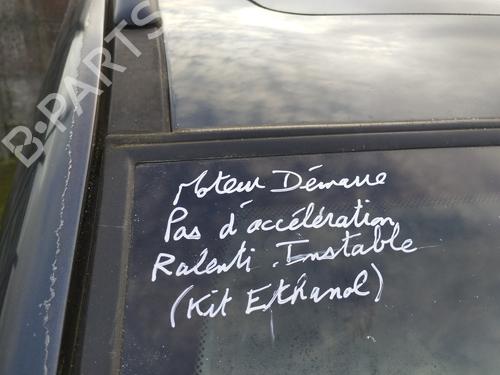 B-PARTS
Moteur Démarre
Pas d'accélération
Ralenti Instable
(Kit Ethanol)